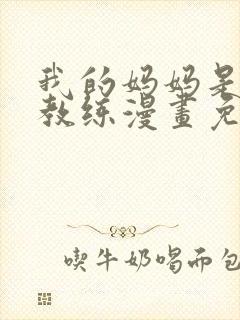 我的妈妈是
教练漫畫免
喫牛奶喝而包